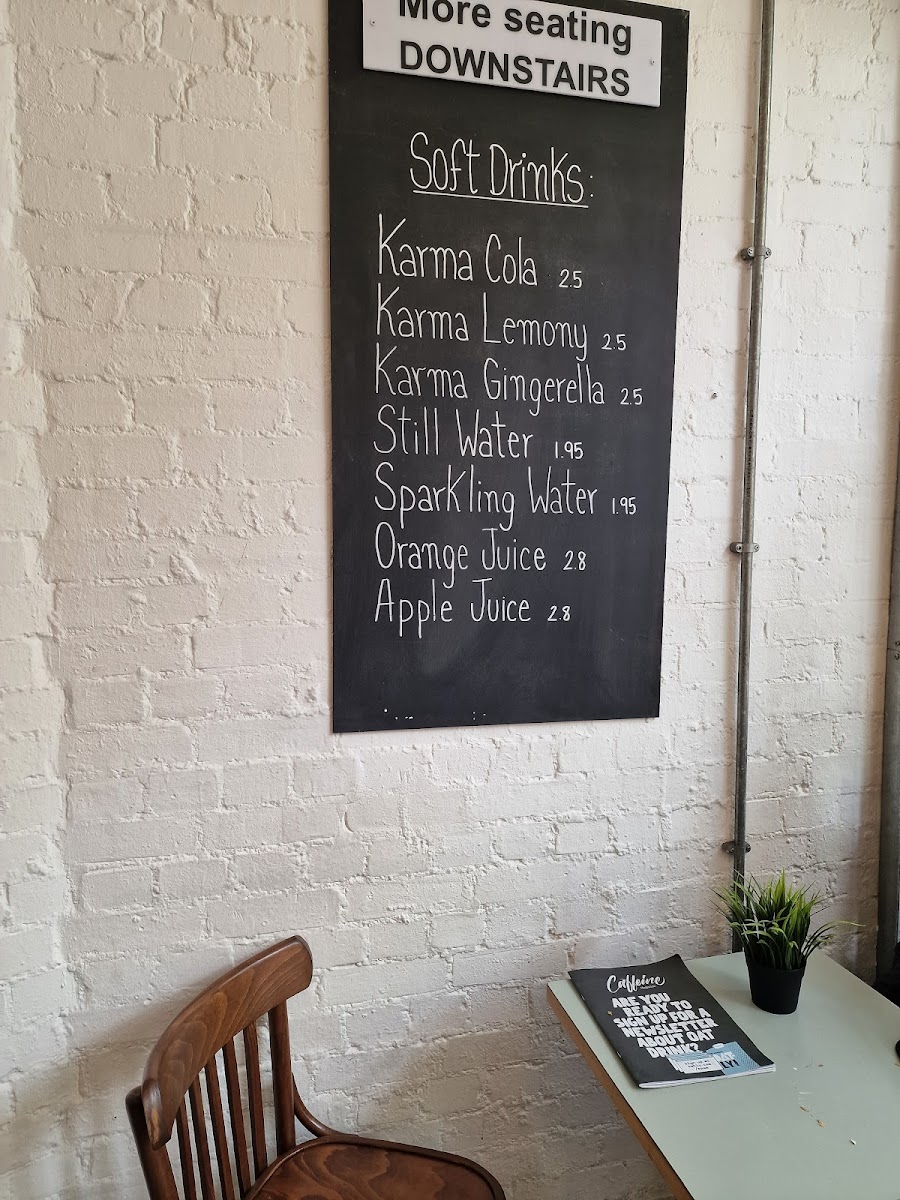 More seating
DOWNSTAIRS
Soft Drinks:
Karma Cola 2.5
Karma Lemony 2.5
Karma Gingerella 2.5
Still Water 1.95
Sparkling Water 1.95
Orange Juice 2.8
Apple Juice 2.8
Caffeine
ARE YOU
READY TO
SIGN UP FOR A
NEWSLETTER
ABOUT OAT
DRINK?